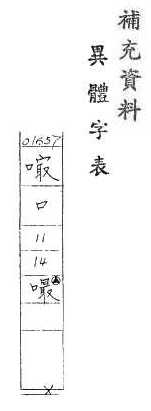 補充資料
異體字表
01657
㗔
口
11
14
嘬